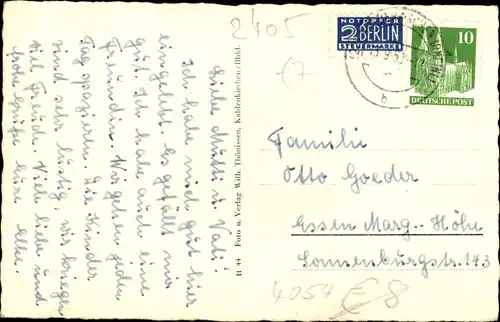 2405
NOTOPFER
2 BERLIN
STEUERMARKE
10
DEUTSCHE POST
b
Liebe Mutti u. Vati!
Ich habe mich gut hier
eingelebt. Es gefällt mir
gut. Ich habe auch eine
Freundin. Wir gehen jeden
Tag spazieren. Die Kinder
sind sehr lustig wir kriegen
viel Freude. Viele liebe und
frohe Grüße Eure Elke.
H 44 Foto u. Verlag Wilh. Thönissen, Kaldenkirchen/Rhld.
Familie
Otto Goeder
Essen Marg.-Höhe
Sonnenburgstr. 143
4054
€8